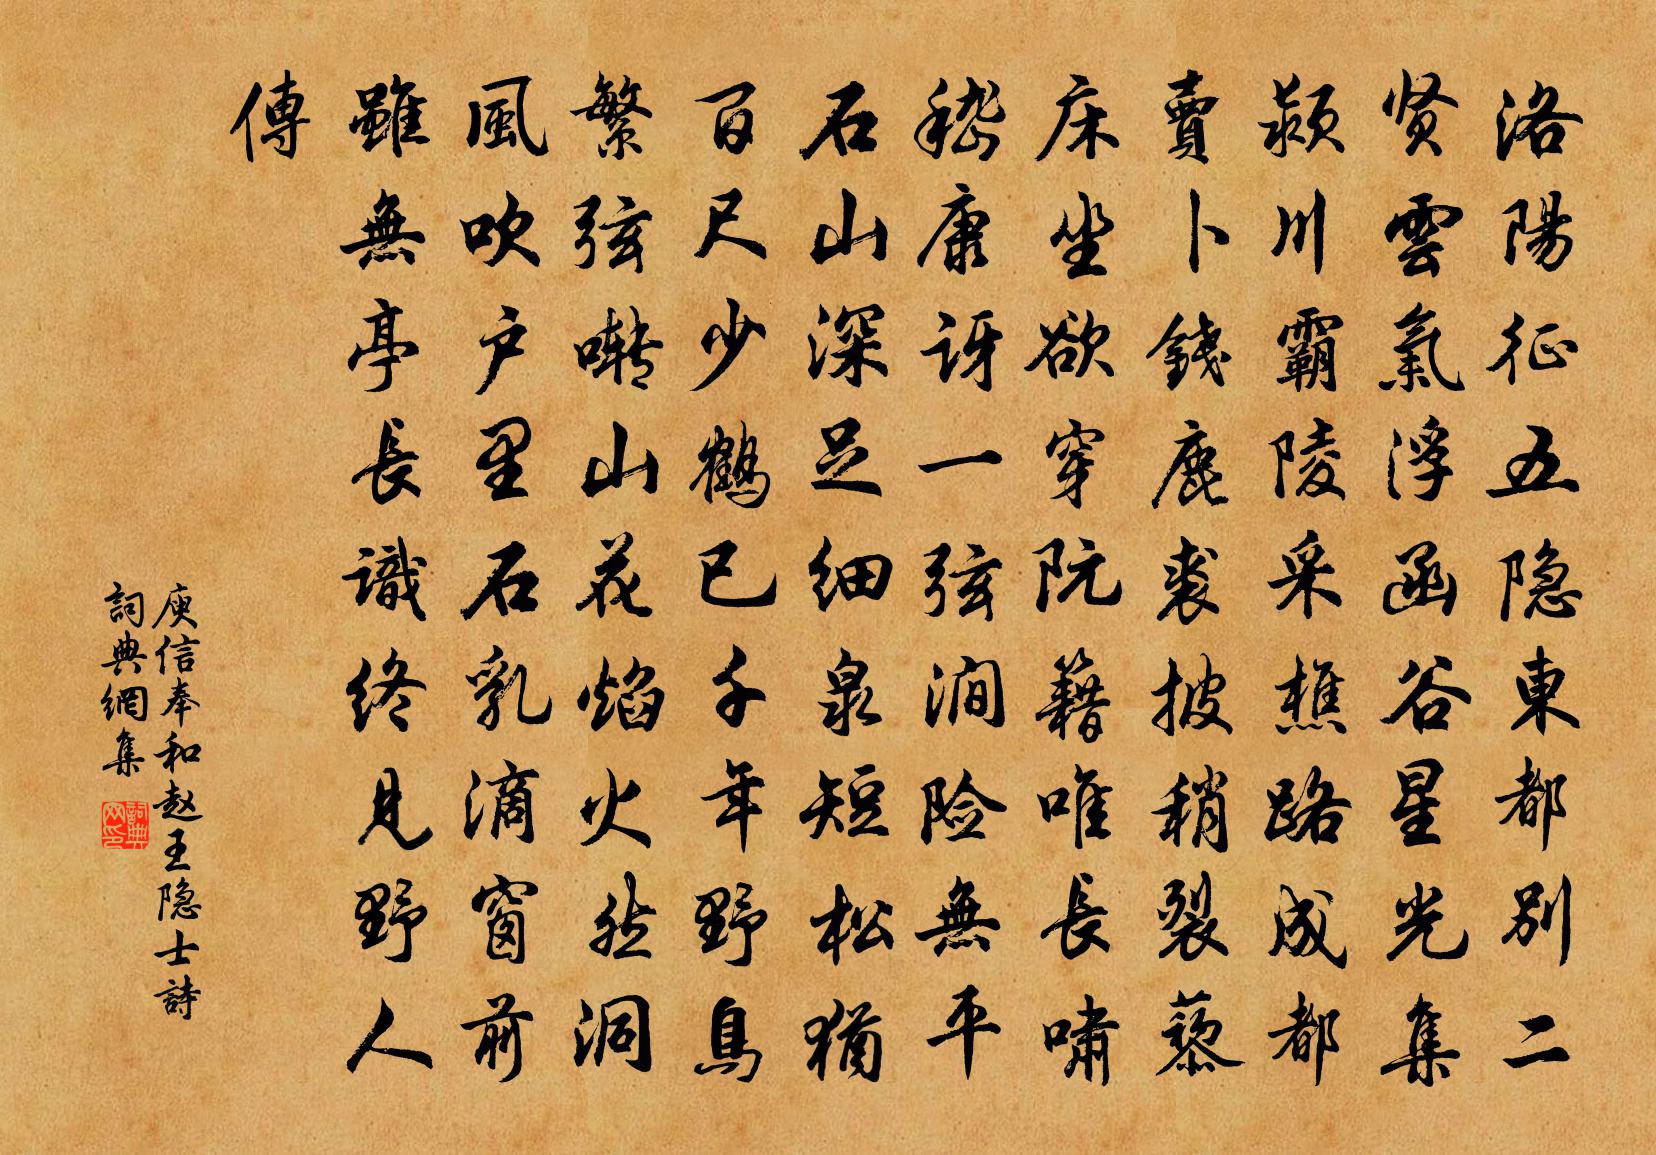 洛陽征五隐東都别二
贤雲氣浮函谷星光集
颍川霸陵采樵路成都
賣卜錢鹿裘披稍裂藜
床坐欲穿阮籍唯長啸
嵇康讶一弦澗险無平
石山深足细泉短松猶
百尺少鶴已千年野鳥
繁弦啭山花焰火然洞
風吹户里石乳滴窗前
雖無亭長識终見野人
傳
庾信奉和赵王隐士詩
詞典網集
詞典网印